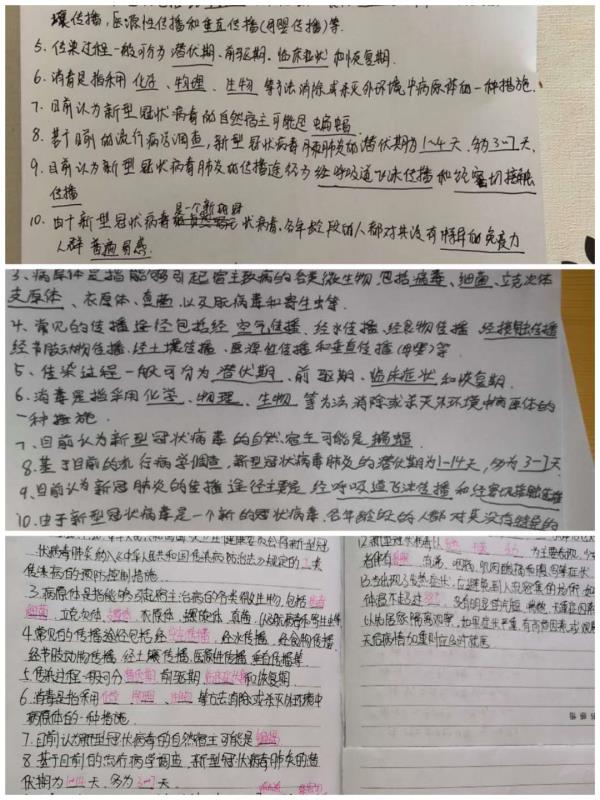 壤传播,医源性传播和垂直传播(母婴传播)等.
5. 传染过程一般可分为潜伏期、前驱期、临床症状和恢复期.
6. 消毒是指采用化学、物理、生物等方法消除或杀灭外环境中病原体的一种措施.
7. 目前认为新型冠状病毒的自然宿主可能是蝙蝠.
8. 基于目前的流行病学调查,新型冠状病毒肺炎的潜伏期为1~14天,多为3~7天.
9. 目前认为新型冠状病毒肺炎的传播途径为经呼吸道飞沫传播和经密切接触
传播
是一个新的冠
10. 由于新型冠状病毒状病毒,各年龄段的人都对其没有特异的免疫力
人群普遍易感.
3、病原体是指能够引起宿主致病的各类微生物,包括病毒、细菌、立克次体
支原体、衣原体、真菌以及朊病毒和寄生虫等.
4. 常见的传播途径包括经空气传播、经水传播、经食物传播、经接触传播
经节肢动物传播、经土壤传播、医源性传播和垂直传播(母婴)等
5、传染过程一般可分为潜伏期、前驱期、临床症状和恢复期.
6、消毒是指采用化学、物理、生物等方法消除或杀灭外环境中病原体的
一种措施.
7、目前认为新型冠状病毒的自然宿主可能是蝙蝠
8.基于目前的流行病学调查,新型冠状病毒肺炎的潜伏期为1-14天,多为3-7天
9.目前认为新冠肺炎的传播途径主要是经呼吸道飞沫传播和经密切接触传播
10.由于新型冠状病毒是一个新的冠状病毒,各年龄段的人都对其没有特异的
状病毒肺炎纳入《中华人民共和国传染病防治法》规定的乙类
传染病的预防控制措施.
3.病原体是指能够引起宿主治病的各类微生物,包括病毒
细菌,立克次体,衣原体,螺旋体,真菌,以及朊病毒和寄生虫等
4.常见的传播途径包括经空气传播,经水传播,经食物传播,
经节肢动物传播,经土壤传播,医源性传播,垂直传播等.
5.传染过程一般可分潜伏期,前驱期,临床症状和恢复期.
6.消毒是指采用化学 物理 生物等方法消除或杀灭外环境中
病原体的一种措施.
7.目前认为新型冠状病毒的自然宿主可能是蝙蝠
8.基于目前的流行病学调查,新型冠状病毒肺炎的潜
伏期为1-14天,多为3-7天.
体温不超过
以居家隔离观察,如果症状严重,
天后病情加重则应及时就医